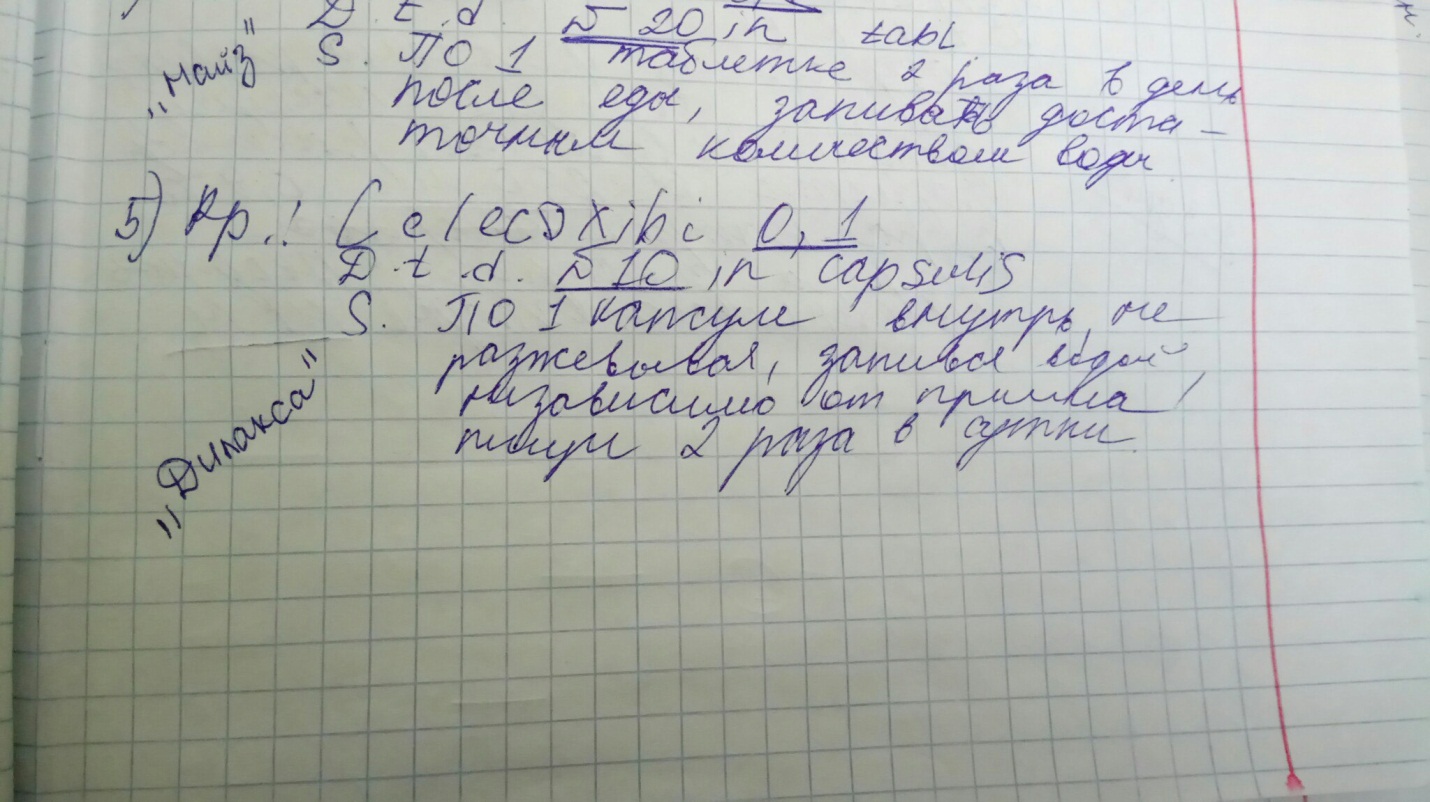 D. t. d. № 20 in tabl
„Найз" S. ПО 1 таблетке 2 раза в день
после еды, запивать доста-
точным количеством воды
5) Rp.: Celecoxibi 0,1
D. t. d. № 10 in capsulis
S. ПО 1 капсуле внутрь, не
разжевывая, запивая водой,
независимо от приема
пищи 2 раза в сутки.
„Дилакса"